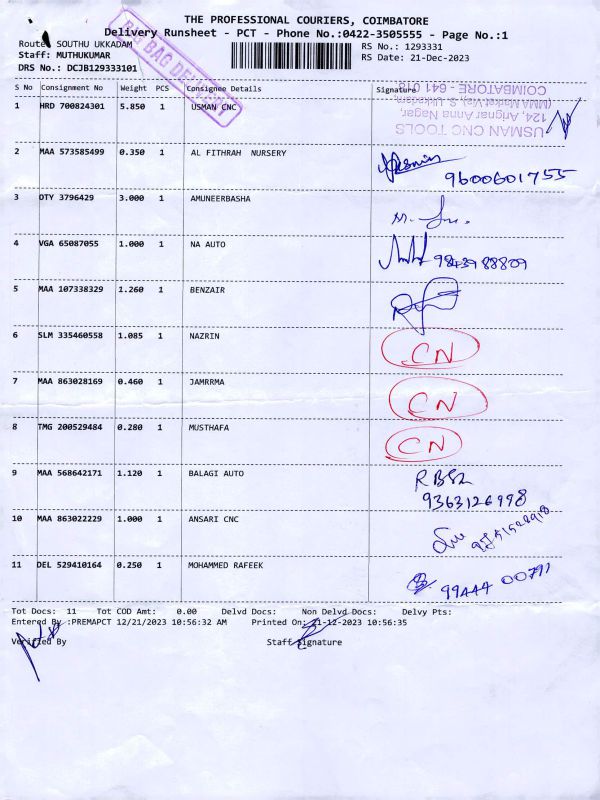 THE PROFESSIONAL COURIERS, COIMBATORE
Delivery Runsheet - PCT - Phone No.:0422-3505555 - Page No.:1
Route: SOUTHU UKKADAM
RS No.: 1293331
Staff: MUTHUKUMAR
RS Date: 21-Dec-2023
DRS No.: DCJB129333101
BIG BAG DELIVERY
S No Consignment No Weight PCS Consignee Details Signature
1 HRD 700824301 5.850 1 USMAN CNC
USMAN CNC TOOLS
124, Arignar Anna Nagar,
(MMA Market Via), S. Ukkadam
COIMBATORE - 641 018
2 MAA 573585499 0.350 1 AL FITHRAH NURSERY
9600601755
3 DTY 3796429 3.000 1 AMUNEERBASHA
4 VGA 65087055 1.000 1 NA AUTO
9843988809
5 MAA 107338329 1.260 1 BENZAIR
6 SLM 335460558 1.085 1 NAZRIN CN
7 MAA 863028169 0.460 1 JAMRRMA CN
8 TMG 200529484 0.280 1 MUSTHAFA CN
9 MAA 568642171 1.120 1 BALAGI AUTO
9363126998
10 MAA 863022229 1.000 1 ANSARI CNC
11 DEL 529410164 0.250 1 MOHAMMED RAFEEK
99444 00791
Tot Docs: 11 Tot COD Amt: 0.00 Delvd Docs: Non Delvd Docs: Delvy Pts:
Entered By :PREMAPCT 12/21/2023 10:56:32 AM Printed On: 21-12-2023 10:56:35
Verified By Staff Signature